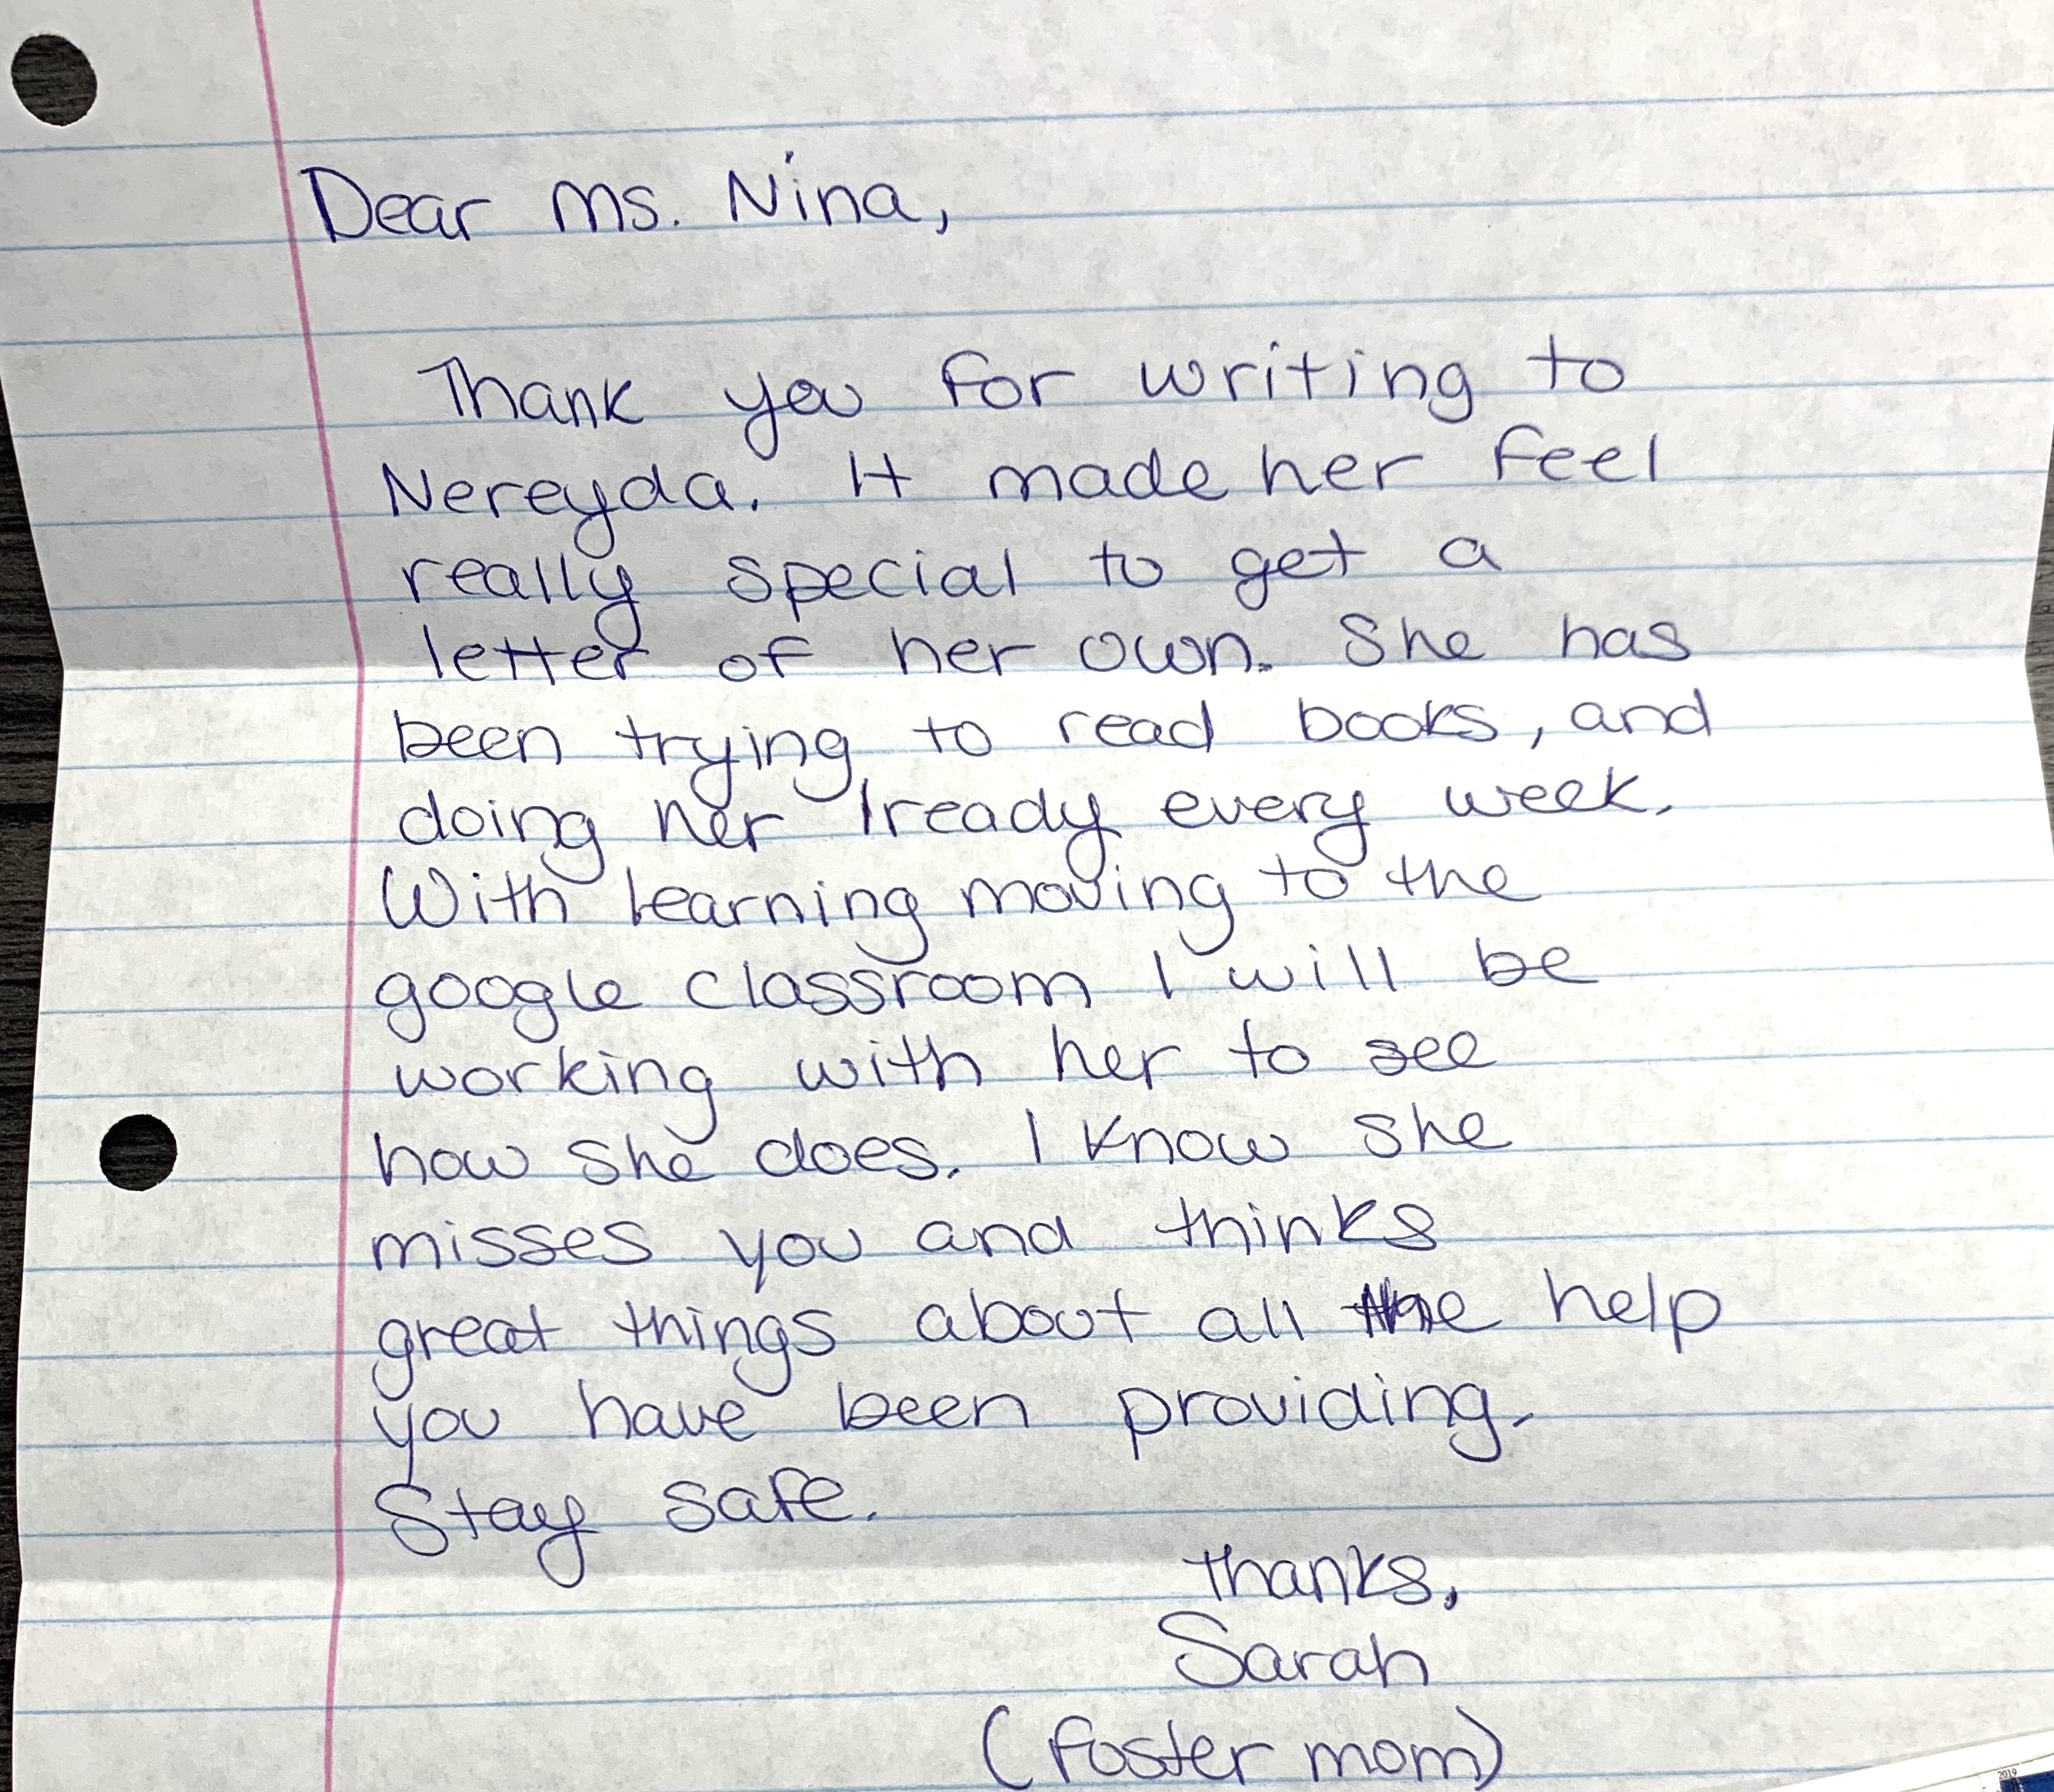 Dear Ms. Nina,
Thank you for writing to
Nereyda. It made her feel
really special to get a
letter of her own. She has
been trying to read books, and
doing her Iready every week.
With learning moving to the
google classroom I will be
working with her to see
how she does. I know she
misses you and thinks
great things about all the help
you have been providing.
Stay safe.
Thanks,
Sarah
(foster mom)
2019